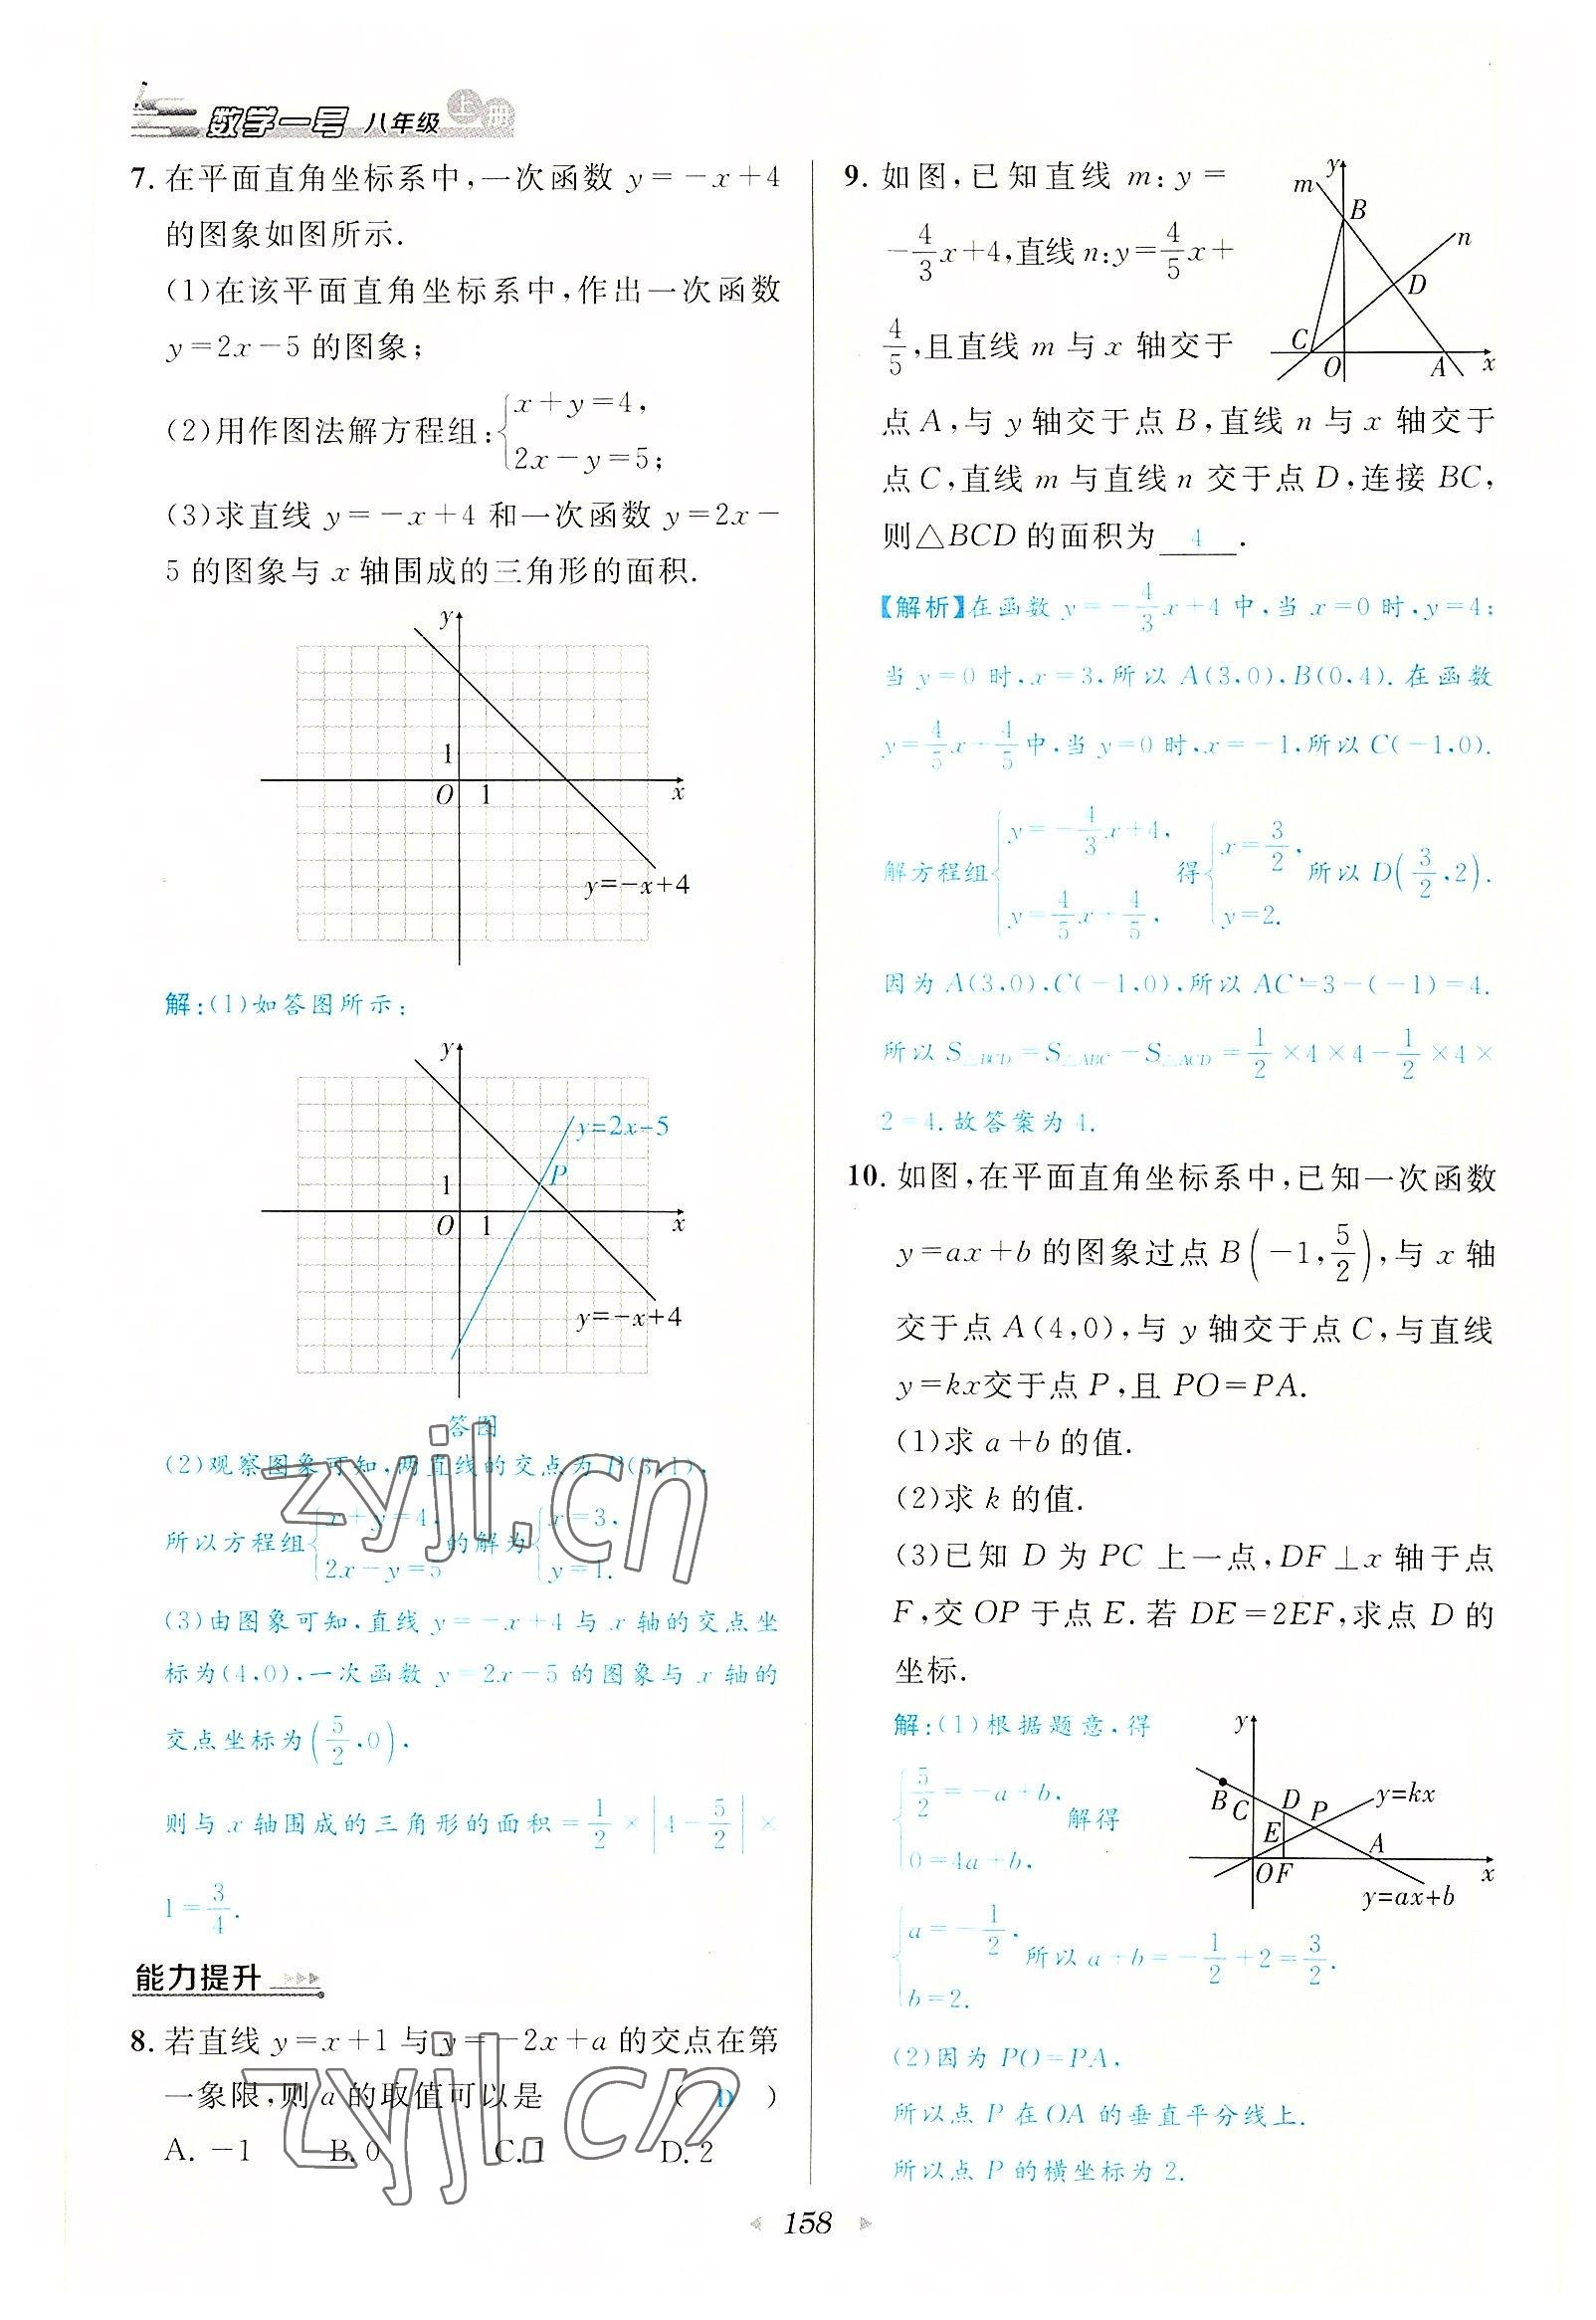 数学一号 八年级 上册
7. 在平面直角坐标系中,一次函数 y=-x+4
的图象如图所示.
(1)在该平面直角坐标系中,作出一次函数
y=2x-5 的图象;
(2)用作图法解方程组:{x+y=4,
2x-y=5;
(3)求直线 y=-x+4 和一次函数 y=2x-
5 的图象与 x 轴围成的三角形的面积.
y
1
O 1 x
y=-x+4
解:(1)如答图所示:
y
y=2x-5
P
1
O 1 x
y=-x+4
答图
(2)观察图象可知,两直线的交点为 P(3,1),
所以方程组{x+y=4, 2x-y=5 的解为{x=3, y=1.
(3)由图象可知,直线 y=-x+4 与 x 轴的交点坐
标为(4,0),一次函数 y=2x-5 的图象与 x 轴的
交点坐标为(5/2,0),
则与 x 轴围成的三角形的面积=1/2×|4-5/2|×
1=3/4.
能力提升
8. 若直线 y=x+1 与 y=-2x+a 的交点在第
一象限,则 a 的取值可以是 ( D )
A. -1 B. 0 C. 1 D. 2
9. 如图,已知直线 m:y=
-4/3x+4,直线 n:y=4/5x+
4/5,且直线 m 与 x 轴交于
点 A,与 y 轴交于点 B,直线 n 与 x 轴交于
点 C,直线 m 与直线 n 交于点 D,连接 BC,
则△BCD 的面积为 4 .
m y
B
n
D
C
O A x
【解析】在函数 y=-4/3x+4 中,当 x=0 时,y=4;
当 y=0 时,x=3,所以 A(3,0),B(0,4). 在函数
y=4/5x+4/5中,当 y=0 时,x=-1,所以 C(-1,0).
解方程组{y=-4/3x+4, y=4/5x+4/5, 得{x=3/2, y=2. 所以 D(3/2,2).
因为 A(3,0),C(-1,0),所以 AC=3-(-1)=4.
所以 S△BCD=S△ABC-S△ACD=1/2×4×4-1/2×4×
2=4. 故答案为 4.
10. 如图,在平面直角坐标系中,已知一次函数
y=ax+b 的图象过点 B(-1,5/2),与 x 轴
交于点 A(4,0),与 y 轴交于点 C,与直线
y=kx交于点 P,且 PO=PA.
(1)求 a+b 的值.
(2)求 k 的值.
(3)已知 D 为 PC 上一点,DF⊥x 轴于点
F,交 OP 于点 E. 若 DE=2EF,求点 D 的
坐标.
解:(1)根据题意,得
{5/2=-a+b, 0=4a+b, 解得
{a=-1/2, b=2. 所以 a+b=-1/2+2=3/2.
y
B C D P y=kx
E A
O F x
y=ax+b
(2)因为 PO=PA,
所以点 P 在 OA 的垂直平分线上.
所以点 P 的横坐标为 2.
zyjl.cn
zyjl.cn
158